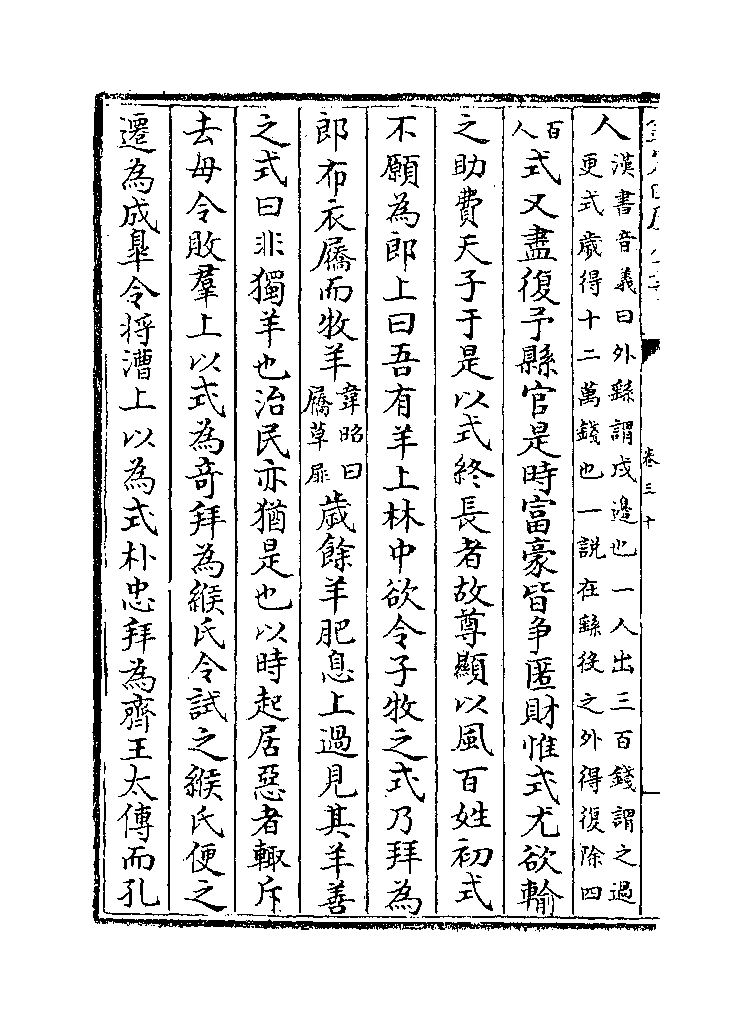 卷三十
人漢書音義曰外繇謂戍邊也一人出三百錢謂之過更式歲得十二萬錢也一說在繇役之外得復除四
百人式又盡復予縣官是時富豪皆争匿財惟式尤欲輸
之助費天子于是以式終長者故尊顯以風百姓初式
不願為郎上曰吾有羊上林中欲令子牧之式乃拜為
郎布衣屩而牧羊韋昭曰屩草屝歲餘羊肥息上過見其羊善
之式曰非獨羊也治民亦猶是也以時起居惡者輒斥
去毋令敗羣上以式為竒拜為緱氏令試之緱氏便之
遷為成臯令将漕上以為式朴忠拜為齊王太傅而孔